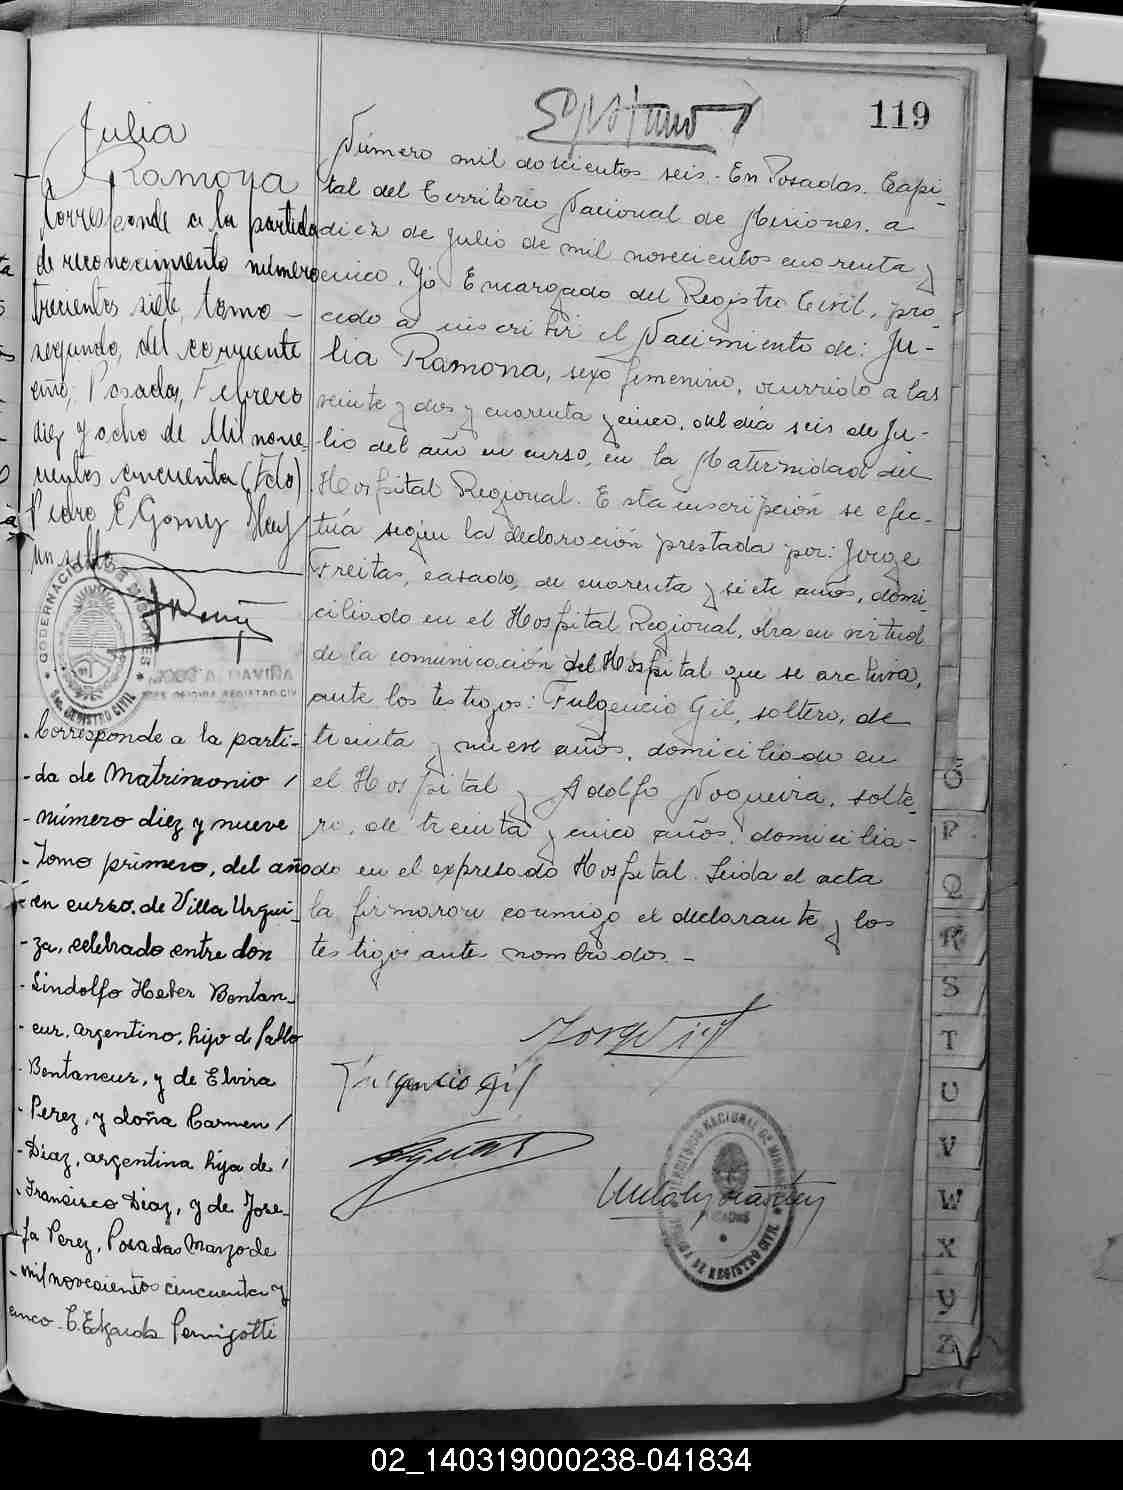 119
Julia
Ramona
Corresponde a la partida
de reconocimiento número
trecientos siete, tomo -
segundo, del corriente
año; Posadas, Febrero
diez y ocho de Mil nove-
cientos cincuenta (Fdo)
Pedro E Gomez Hay
un sello
GOBERNACION DE MISIONES
REGISTRO CIVIL
OFICINA REGISTRO CIV
Corresponde a la parti-
da de Matrimonio /
número diez y nueve
tomo primero, del año
en curso, de Villa Urqui-
za, celebrado entre don
Lindolfo Heber Bentan-
cur, argentino, hijo de Pablo
Bentancur, y de Elvira
Perez, y doña Carmen /
Diaz, argentina hija de /
Francisco Diaz, y de Jose-
fa Perez, Posadas Marzo de
mil novecientos cincuenta y
cinco. C. Edgardo Pernigotti
Número mil doscientos seis. En Posadas, Capi-
tal del Territorio Nacional de Misiones, a
diez de julio de mil novecientos cuarenta y
cinco, Yo Encargado del Registro Civil, pro-
cedo a inscribir el Nacimiento de: Ju-
lia Ramona, sexo femenino, ocurrido a las
veinte y dos y cuarenta y cinco, del día seis de Ju-
lio del año en curso, en la Maternidad del
Hospital Regional. Esta inscripción se efec-
túa según la declaración prestada por: Jorge
Freitas, casado, de cuarenta y siete años, domi-
ciliado en el Hospital Regional, obra en virtud
de la comunicación del Hospital que se archiva,
ante los testigos: Fulgencio Gil, soltero, de
treinta y nueve años, domiciliado en
el Hospital y Adolfo Nogueira, solte-
ro, de treinta y cinco años, domicilia-
do en el expresado Hospital. Leida el acta
la firmaron conmigo el declarante y los
testigos antes nombrados. -
Fulgencio Gil
TERRITORIO NACIONAL DE MISIONES
OFICINA DE REGISTRO CIVIL
O
P
Q
R
S
T
U
V
W
X
Y
Z
02_140319000238-041834